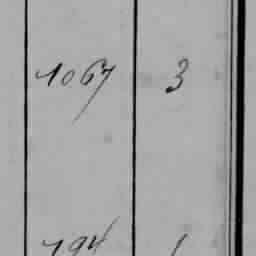 1067 3
194 1